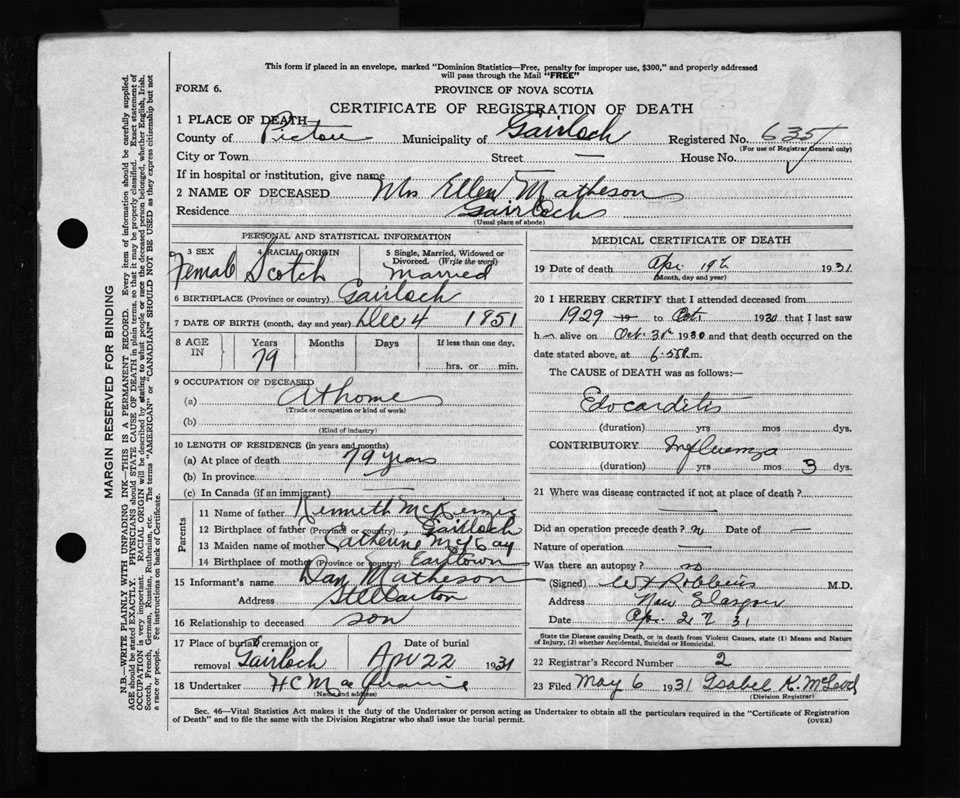 This form if placed in an envelope, marked "Dominion Statistics—Free, penalty for improper use, $300," and properly addressed
will pass through the Mail "FREE"
FORM 6.
PROVINCE OF NOVA SCOTIA
CERTIFICATE OF REGISTRATION OF DEATH
1 PLACE OF DEATH
County of Pictou Municipality of Gairloch Registered No. 635
(For use of Registrar General only)
City or Town Street — House No.
If in hospital or institution, give name
2 NAME OF DECEASED Mrs Ellen Matheson
Residence Gairloch
(Usual place of abode)
PERSONAL AND STATISTICAL INFORMATION
3 SEX Female
4 RACIAL ORIGIN Scotch
5 Single, Married, Widowed or Divorced. (Write the word) Married
6 BIRTHPLACE (Province or country) Gairloch
7 DATE OF BIRTH (month, day and year) Dec 4 1851
8 AGE IN Years 79 Months Days If less than one day, hrs. or min.
9 OCCUPATION OF DECEASED
(a) At home
(Trade or occupation or kind of work)
(b)
(Kind of industry)
10 LENGTH OF RESIDENCE (in years and months)
(a) At place of death 79 years
(b) In province
(c) In Canada (if an immigrant) —
Parents
11 Name of father Kenneth McKenzie
12 Birthplace of father (Province or country) Gairloch
13 Maiden name of mother Catherine McKay
14 Birthplace of mother (Province or country) Earltown
15 Informant's name Dan Matheson
Address Stellarton
16 Relationship to deceased son
17 Place of burial cremation or removal Gairloch
Date of burial Apr 22 1931
18 Undertaker H C MacQuarrie
(Name and address)
MEDICAL CERTIFICATE OF DEATH
19 Date of death Apr 19th 1931
(Month, day and year)
20 I HEREBY CERTIFY that I attended deceased from
1929 19 to Oct. 1930 that I last saw
h alive on Oct 31 1930 and that death occurred on the
date stated above, at 6.55 P.m.
The CAUSE of DEATH was as follows:—
Edocarditis
(duration) yrs mos dys.
CONTRIBUTORY Influenza
(duration) yrs mos 3 dys.
21 Where was disease contracted if not at place of death?
—
Did an operation precede death? n Date of —
Nature of operation —
Was there an autopsy? no
(Signed) Robbins M.D.
Address New Glasgow
Date Apr. 27 31
State the Disease causing Death, or in death from Violent Causes, state (1) Means and Nature
of Injury, (2) whether Accidental, Suicidal or Homicidal.
22 Registrar's Record Number 2
23 Filed May 6 1931 Isabel K. McLeod
(Division Registrar)
Sec. 46—Vital Statistics Act makes it the duty of the Undertaker or person acting as Undertaker to obtain all the particulars required in the "Certificate of Registration
of Death" and to file the same with the Division Registrar who shall issue the burial permit.
(OVER)
MARGIN RESERVED FOR BINDING
N.B.—WRITE PLAINLY WITH UNFADING INK—THIS IS A PERMANENT RECORD. Every item of information should be carefully supplied.
AGE should be stated EXACTLY. PHYSICIANS should STATE CAUSE OF DEATH in plain terms, so that it may be properly classified. Exact statement of
OCCUPATION is very important. RACIAL ORIGIN will be described by stating to what people or race the deceased person belonged, whether English, Irish,
Scotch, French, German, Russian, Ruthenian, etc. The terms "AMERICAN" or "CANADIAN" SHOULD NOT BE USED as they express citizenship but not
a race or people. Fee instructions on back of Certificate.